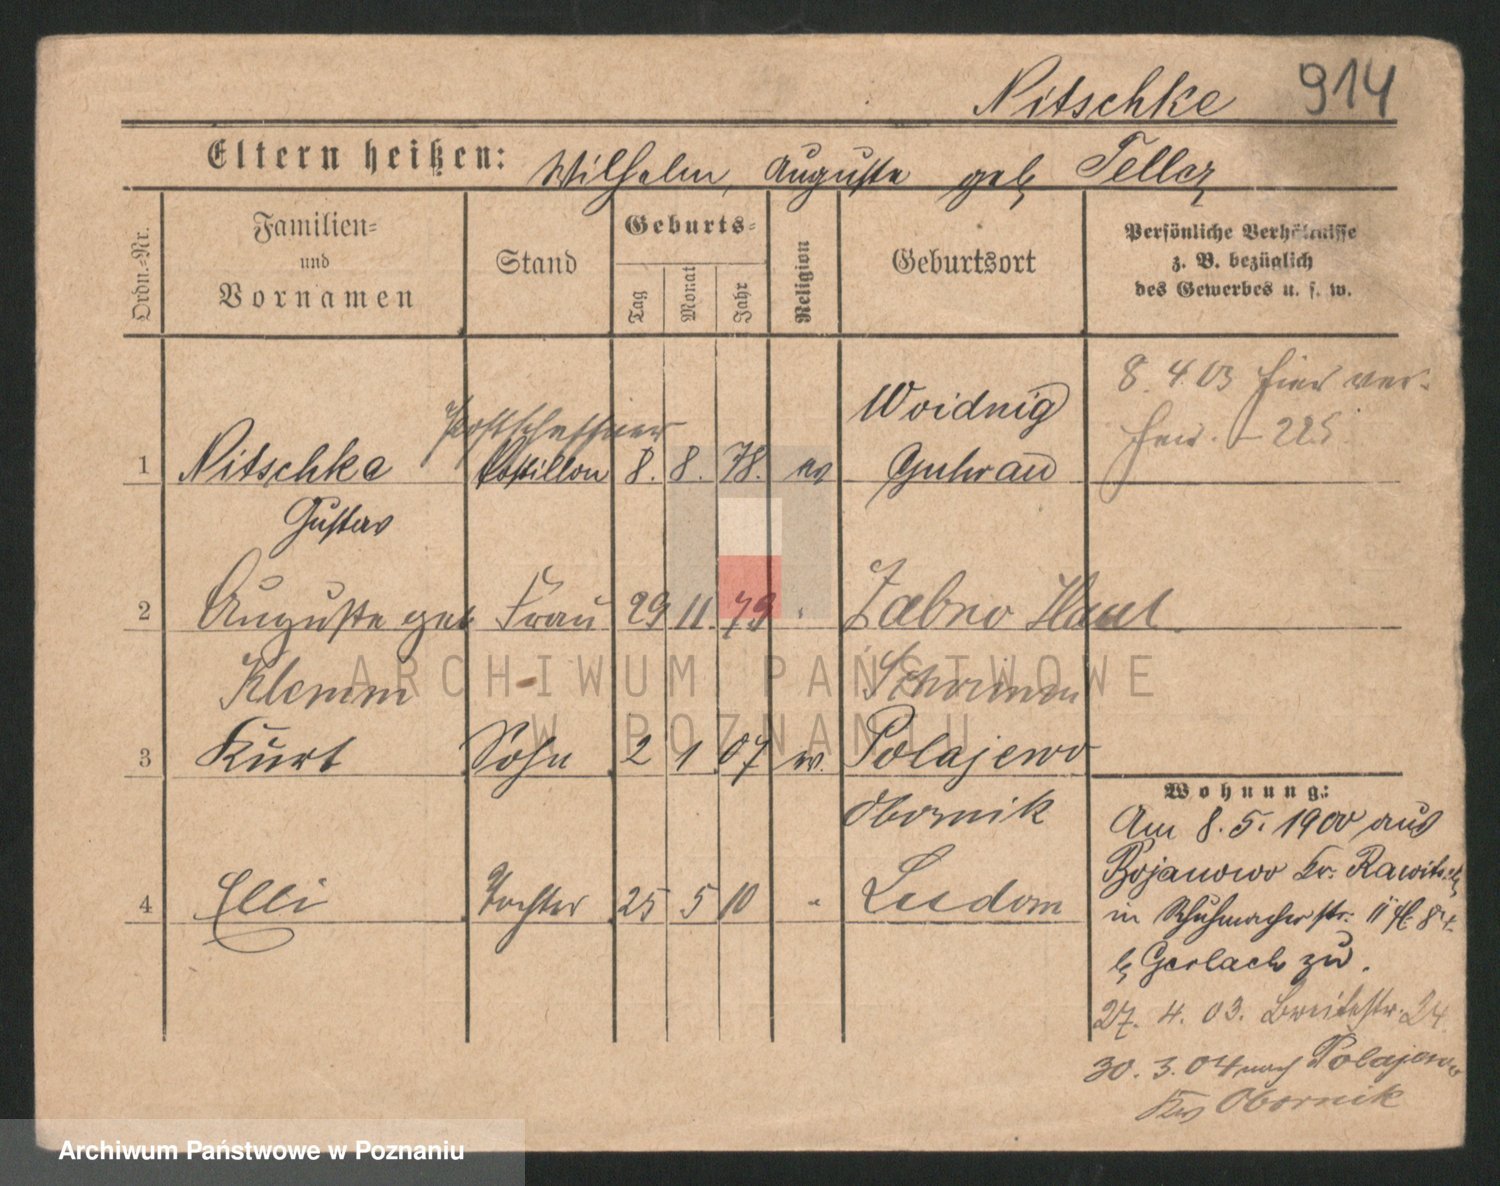 Nitschke 914
Eltern heißen: Wilhelm, Auguste geb. Teller
Ordn.-Nr.
Familien-
und
Vornamen
Stand
Geburts-
Tag
Monat
Jahr
Religion
Geburtsort
Persönliche Verhältnisse
z. B. bezüglich
des Gewerbes u. s. w.
8. 4. 03 hier ver-
Postschaffner
Woidnig
1 Nitschke Postillon 8. 8. 78. ev Guhrau
Gustav
2 Auguste geb Frau 29 11. 79 Zabno Haul.
Klemm Schrimm
3 Kurt Sohn 2 1 07 ev. Polajewo
Obornik
4 Elli Tochter 25 5 10 " Ludom
Wohnung:
Am 8. 5. 1900 aus
Bojanowo Kr. Rawitsch
in Schuhmacherstr. 11
b Gerlach zu.
27. 4. 03. Breitestr. 24.
30. 3. 04 nach Polajewo
Krs Obornik
ARCHIWUM PAŃSTWOWE
W POZNANIU
Archiwum Państwowe w Poznaniu